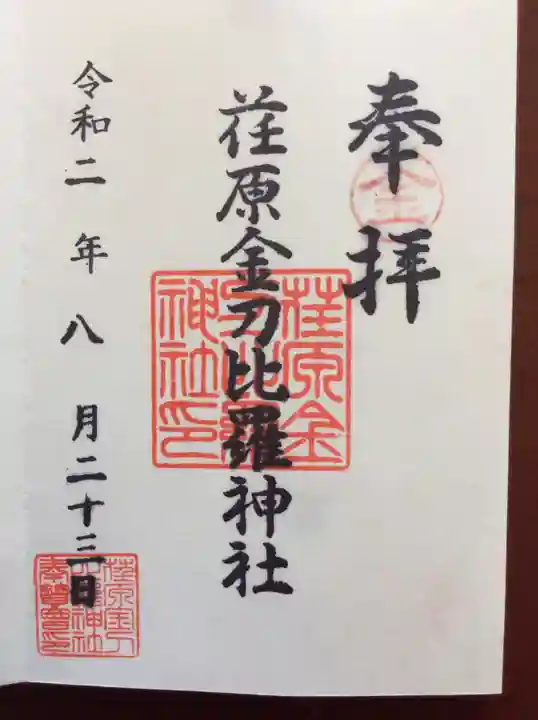 奉拝
金
荏原金刀比羅神社
荏原金刀比羅神社印
令和二年八月二十三日